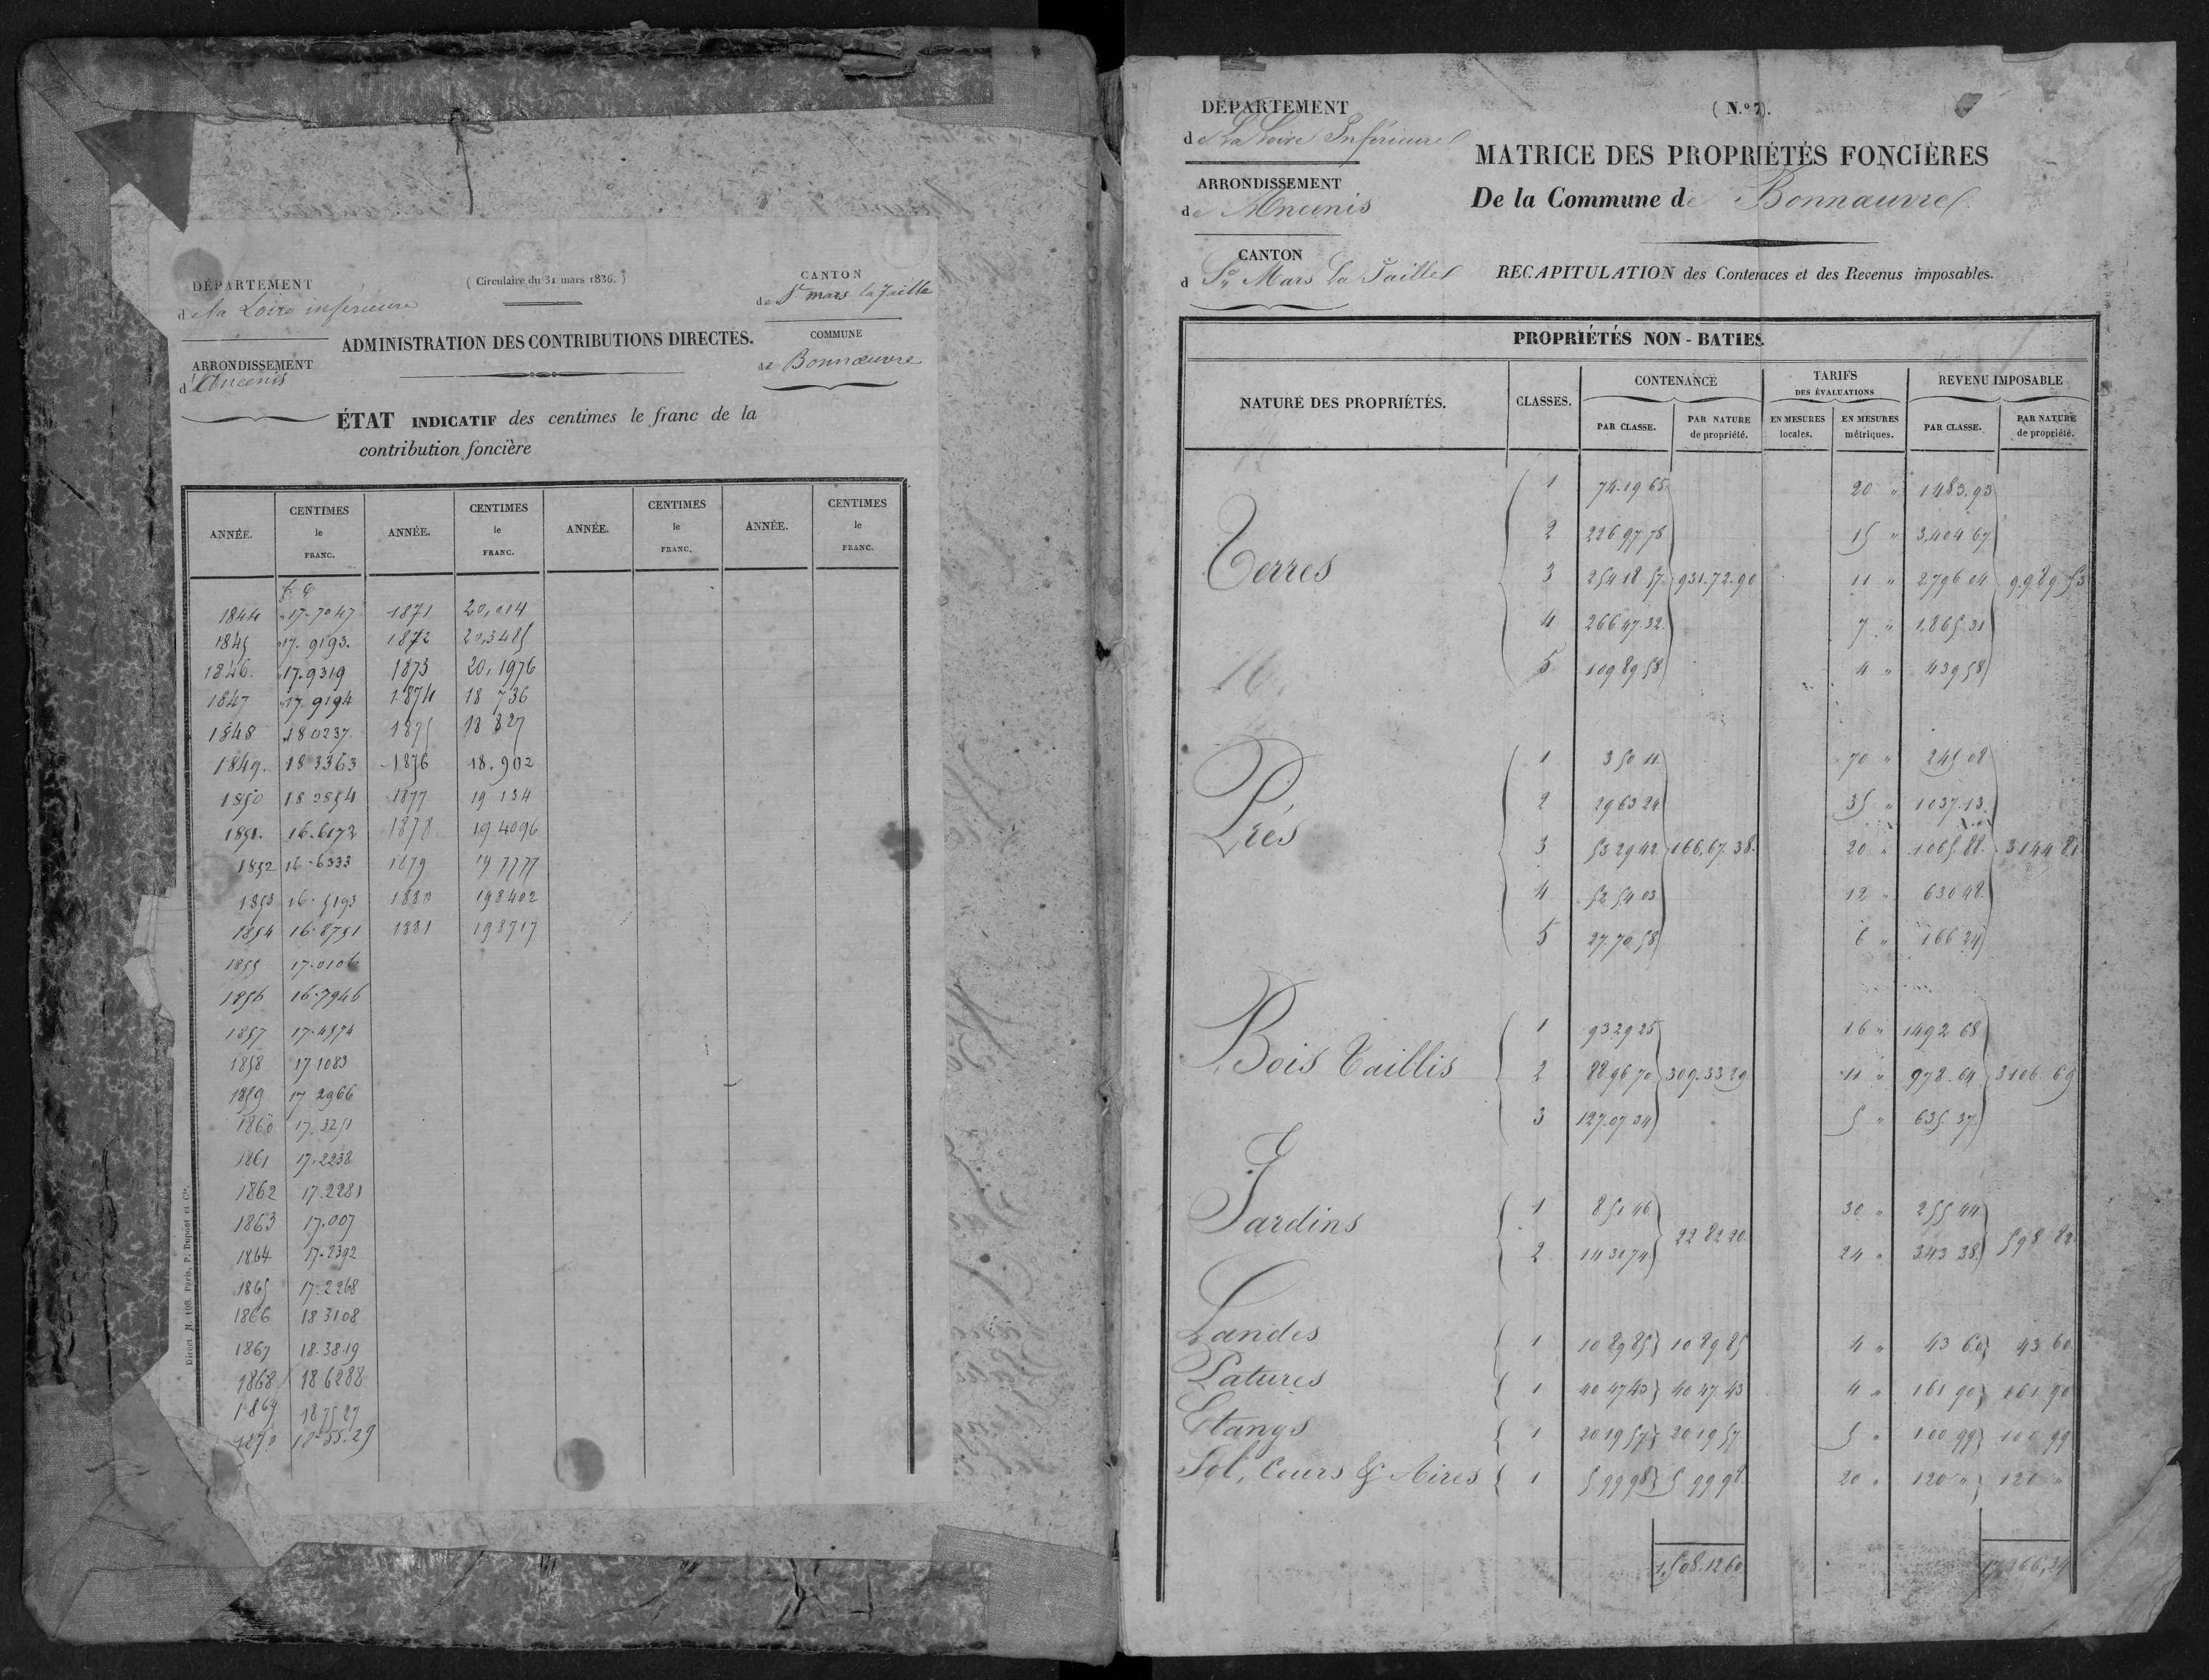 DÉPARTEMENT
de la Loire inférieure
ARRONDISSEMENT
d'Ancenis
( Circulaire du 31 mars 1836. )
CANTON
de St mars la Jaille
COMMUNE
de Bonnœuvre
ADMINISTRATION DES CONTRIBUTIONS DIRECTES.
ÉTAT INDICATIF des centimes le franc de la
contribution foncière
ANNÉE. CENTIMES le FRANC. ANNÉE. CENTIMES le FRANC. ANNÉE. CENTIMES le FRANC. ANNÉE. CENTIMES le FRANC.
f. c
1844 17.7047 1871 20,014
1845 17.9193. 1872 20,3485
1846. 17.9319 1873 20,1976
1847 17.9194 1874 18 736
1848 18 0237. 1875 18 827
1849. 18 3363 1876 18.902
1850 18 2854 1877 19 134
1851. 16.6172 1878 19 4096
1852 16.6333 1879 19 7777
1853 16.5193 1880 198402
1854 16.8751 1881 198717
1855 17.0106
1856 16.7946
1857 17.4574
1858 17 1083
1859 17 2966
1860 17.3251
1861 17.2238
1862 17.2281
1863 17.007
1864 17.2392
1865 17.2268
1866 18 3108
1867 18.3819
1868 18 6288
1869 18 7527
1870 18 55.29
Direct. M. 108. Paris, P. Dupont et Cie.
DÉPARTEMENT
de La Loire Inférieure
ARRONDISSEMENT
de Ancenis
CANTON
d St Mars La Jaille
( N.º 7).
MATRICE DES PROPRIÉTÉS FONCIÈRES
De la Commune de Bonnœuvre
RECAPITULATION des Contenaces et des Revenus imposables.
PROPRIÉTÉS NON-BATIES.
NATURE DES PROPRIÉTÉS. CLASSES. CONTENANCE TARIFS DES ÉVALUATIONS REVENU IMPOSABLE
PAR CLASSE. PAR NATURE de propriété. EN MESURES locales. EN MESURES métriques. PAR CLASSE. PAR NATURE de propriété.
1 74.19 65 20 " 1483.93
2 226 97 78 15 " 3,404 67
Terres 3 254 18 57 931.72.90 11 " 2,796 04 9,989.53
4 266 47.32. 7 " 1,865.31
5 109 89 58 4 " 439 58
1 3 50 11. 70 " 245 08
2 29 63 24 35 " 1037.13.
Prés 3 53 29 42 166,67.38. 20 " 1065.88. 3144 81
4 52 54 03 12 " 630 48.
5 27.70 58 6 " 166 24
1 93 29 25 16 " 1492 68
Bois Taillis 2 88.96 70 309.33 29 11 " 978.64 3106.69
3 127.07 34 5 " 635.37
Jardins 1 8 51 46 22 82 20 30 " 255 44 598 82
2 14 30 74 24 " 343 38
Landes 1 10 89 85 10 89 85 4 " 43 60 43 60
Patures 1 40 47 43 40 47 43 4 " 161 90 161.90
Etangs 1 20 19 57 20 19 57 5 " 100 99 100 99
Sol, Cours & Aires 1 5 99 98 5 99 98 20 " 120 " 120 "
1,508.12 60 17,266,34